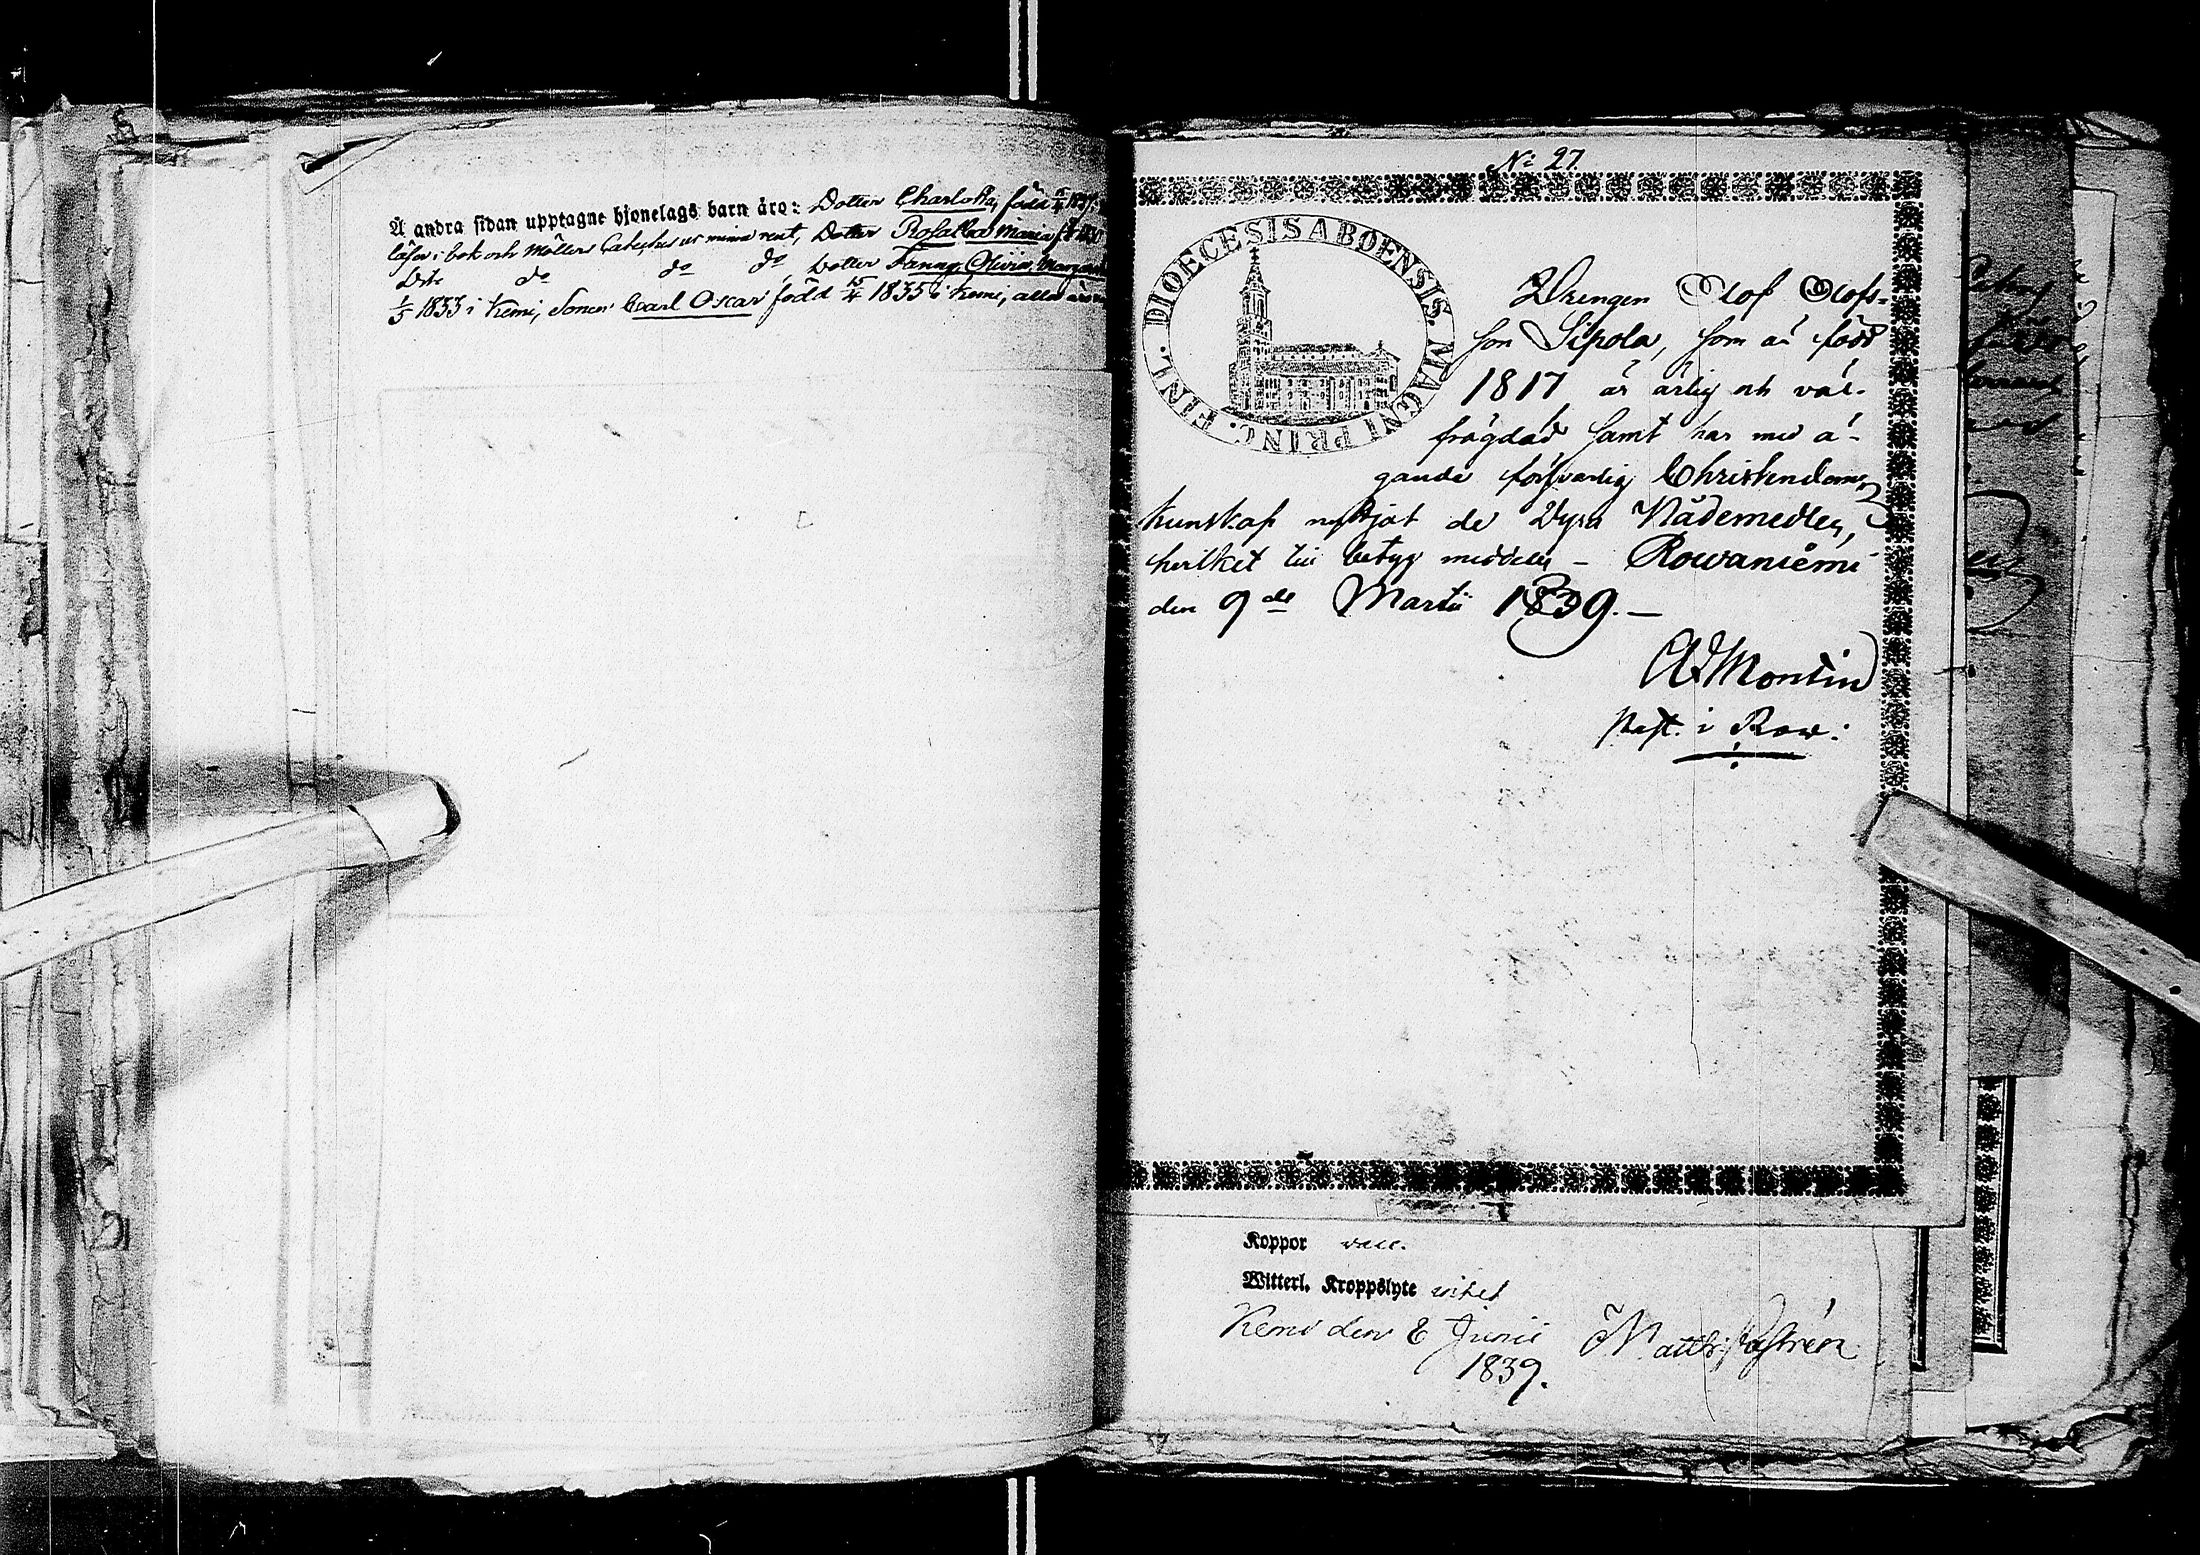 Å andra sidan upptagne hjonelags barn äro: Dotter Charlotta, född
läser i bok och Möllers Catechus ur minne rent, Dotter Rosalba Maria
Dito do do do, Dotter Fanny Olivia Margaret
1/5 1833 i Kemi, Sonen Carl Oscar född 15/4 1835 i Kemi, alla
No 27.
DIOECESIS ABOENSIS. MAGNI PRINC. FINL.
Drengen Olof Olofs-
son Sipola, som är född
1817 är ärlig och väl-
frägdad samt har med ä-
gande försvarlig Christendoms
kunskap nyttjat de Dyra Nådemedlen,
hvilket till betyg meddelas – Rowaniemi
den 9de Martii 1839. –
Montin
Past. i Row:
Koppor vacc.
Witterl. Kroppslyte intet
Kemi den 8 Junii Matth: Castrén
1839.